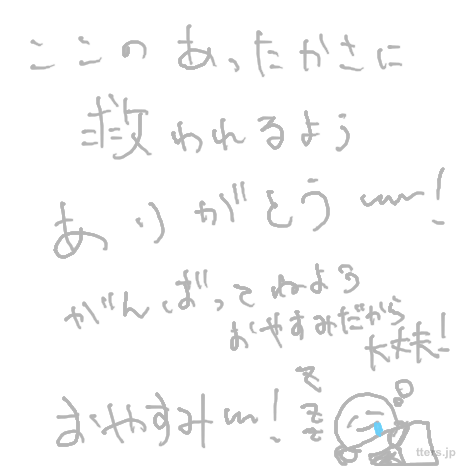 ここの あったかさに
救われるよう
ありがとう〜!
がんばってねよう
おやすみだから
大丈夫!
おやすみ〜!
そ
そ
そ
tters.jp